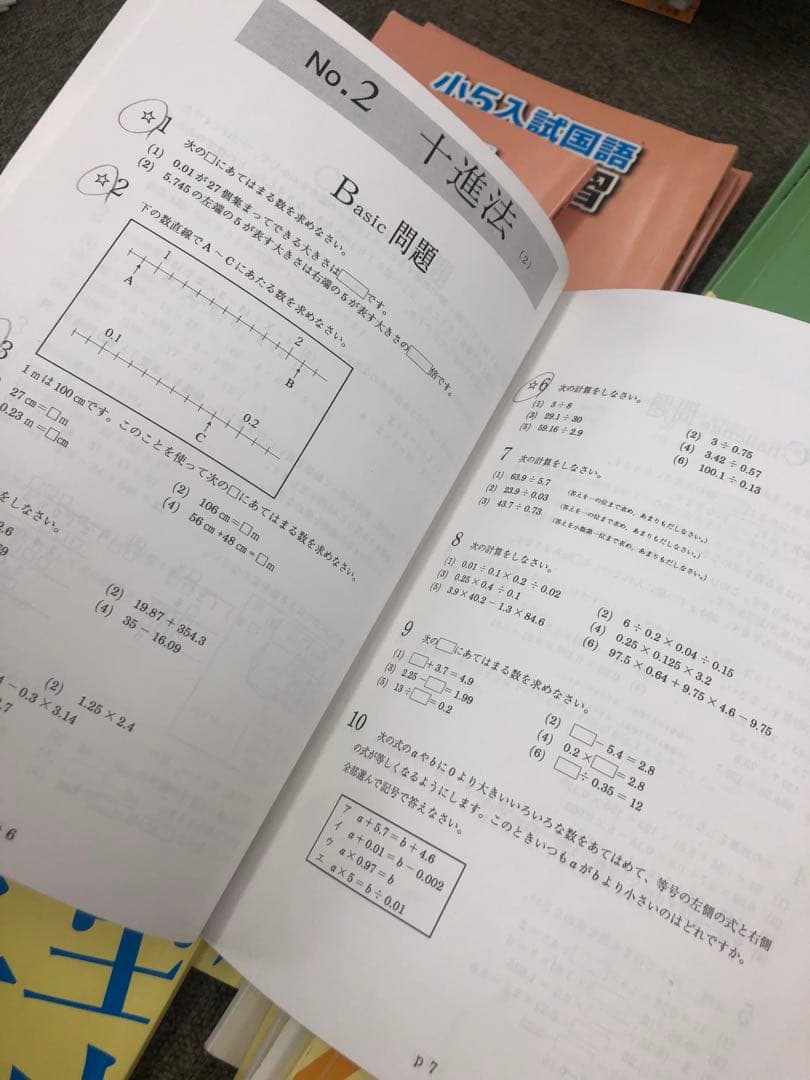 No.2 十進法
(2)
Basic 問題
☆1 次の□にあてはまる数を求めなさい。
(1) 0.01が27個集まってできる大きさは□です。
(2) 5.745の左端の5が表す大きさは右端の5が表す大きさの□倍です。
☆2 下の数直線でA～Cにあたる数を求めなさい。
1
2
A
B
0.1
0.2
C
3 1mは100cmです。このことを使って次の□にあてはまる数を求めなさい。
27cm=□m
(2) 106cm=□m
0.23m=□cm
(4) 56cm+48cm=□m
をしなさい。
(2) 19.87+354.3
(4) 35－16.09
－0.3×3.14
(2) 1.25×2.4
6
☆6 次の計算をしなさい。
(1) 3÷8
(2) 3÷0.75
(3) 29.1÷30
(4) 3.42÷0.57
(5) 59.16÷2.9
(6) 100.1÷0.13
7 次の計算をしなさい。
(1) 63.9÷5.7 (答えを一の位まで求め、あまりもだしなさい。)
(2) 23.9÷0.03 (答えを一の位まで求め、あまりもだしなさい。)
(3) 43.7÷0.73 (答えを小数第一位まで求め、あまりもだしなさい。)
8 次の計算をしなさい。
(1) 0.01÷0.1×0.2÷0.02
(2) 6÷0.2×0.04÷0.15
(3) 0.25×0.4÷0.1
(4) 0.25×0.125×3.2
(5) 3.9×40.2－1.3×84.6
(6) 97.5×0.64+9.75×4.6－9.75
9 次の□にあてはまる数を求めなさい。
(1) □+3.7=4.9
(2) □－5.4=2.8
(3) 2.25－□=1.99
(4) 0.2×□=2.8
(5) 13÷□=0.2
(6) □÷0.35=12
10 次の式のaやbに0より大きいいろいろな数をあてはめて、等号の左側の式と右側
の式が等しくなるようにします。このときいつもaがbより小さいのはどれですか。
全部選んで記号で答えなさい。
ア a+5.7=b+4.6
イ a+0.01=b－0.002
ウ a×0.97=b
エ a×5=b÷0.01
p7
小5入試国語
習